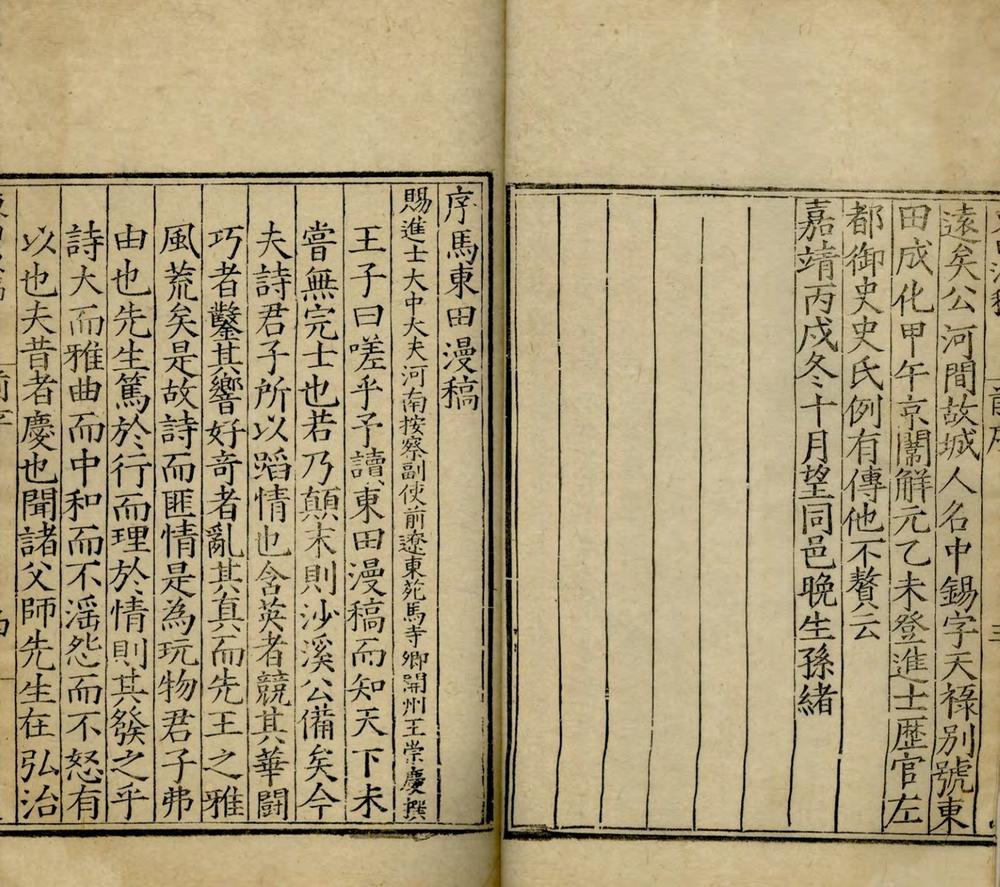 遠矣公河間故城人名中錫字天祿別號東
田成化甲午京闈解元乙未登進士歷官左
都御史史氏例有傳他不贅云
嘉靖丙戌冬十月望同邑晚生孫緒
序馬東田漫稿
賜進士大中大夫河南按察副使前遼東苑馬寺卿開州王崇慶撰
王子曰嗟乎予讀東田漫稿而知天下未
嘗無完士也若乃顛末則沙溪公備矣今
夫詩君子所以蹈情也含英者競其華鬪
巧者鑿其響好奇者亂其真而先王之雅
風荒矣是故詩而匪情是為玩物君子弗
由也先生篤於行而理於情則其發之乎
詩大而雅曲而中和而不滛怨而不怒有
以也夫昔者慶也聞諸父師先生在弘治